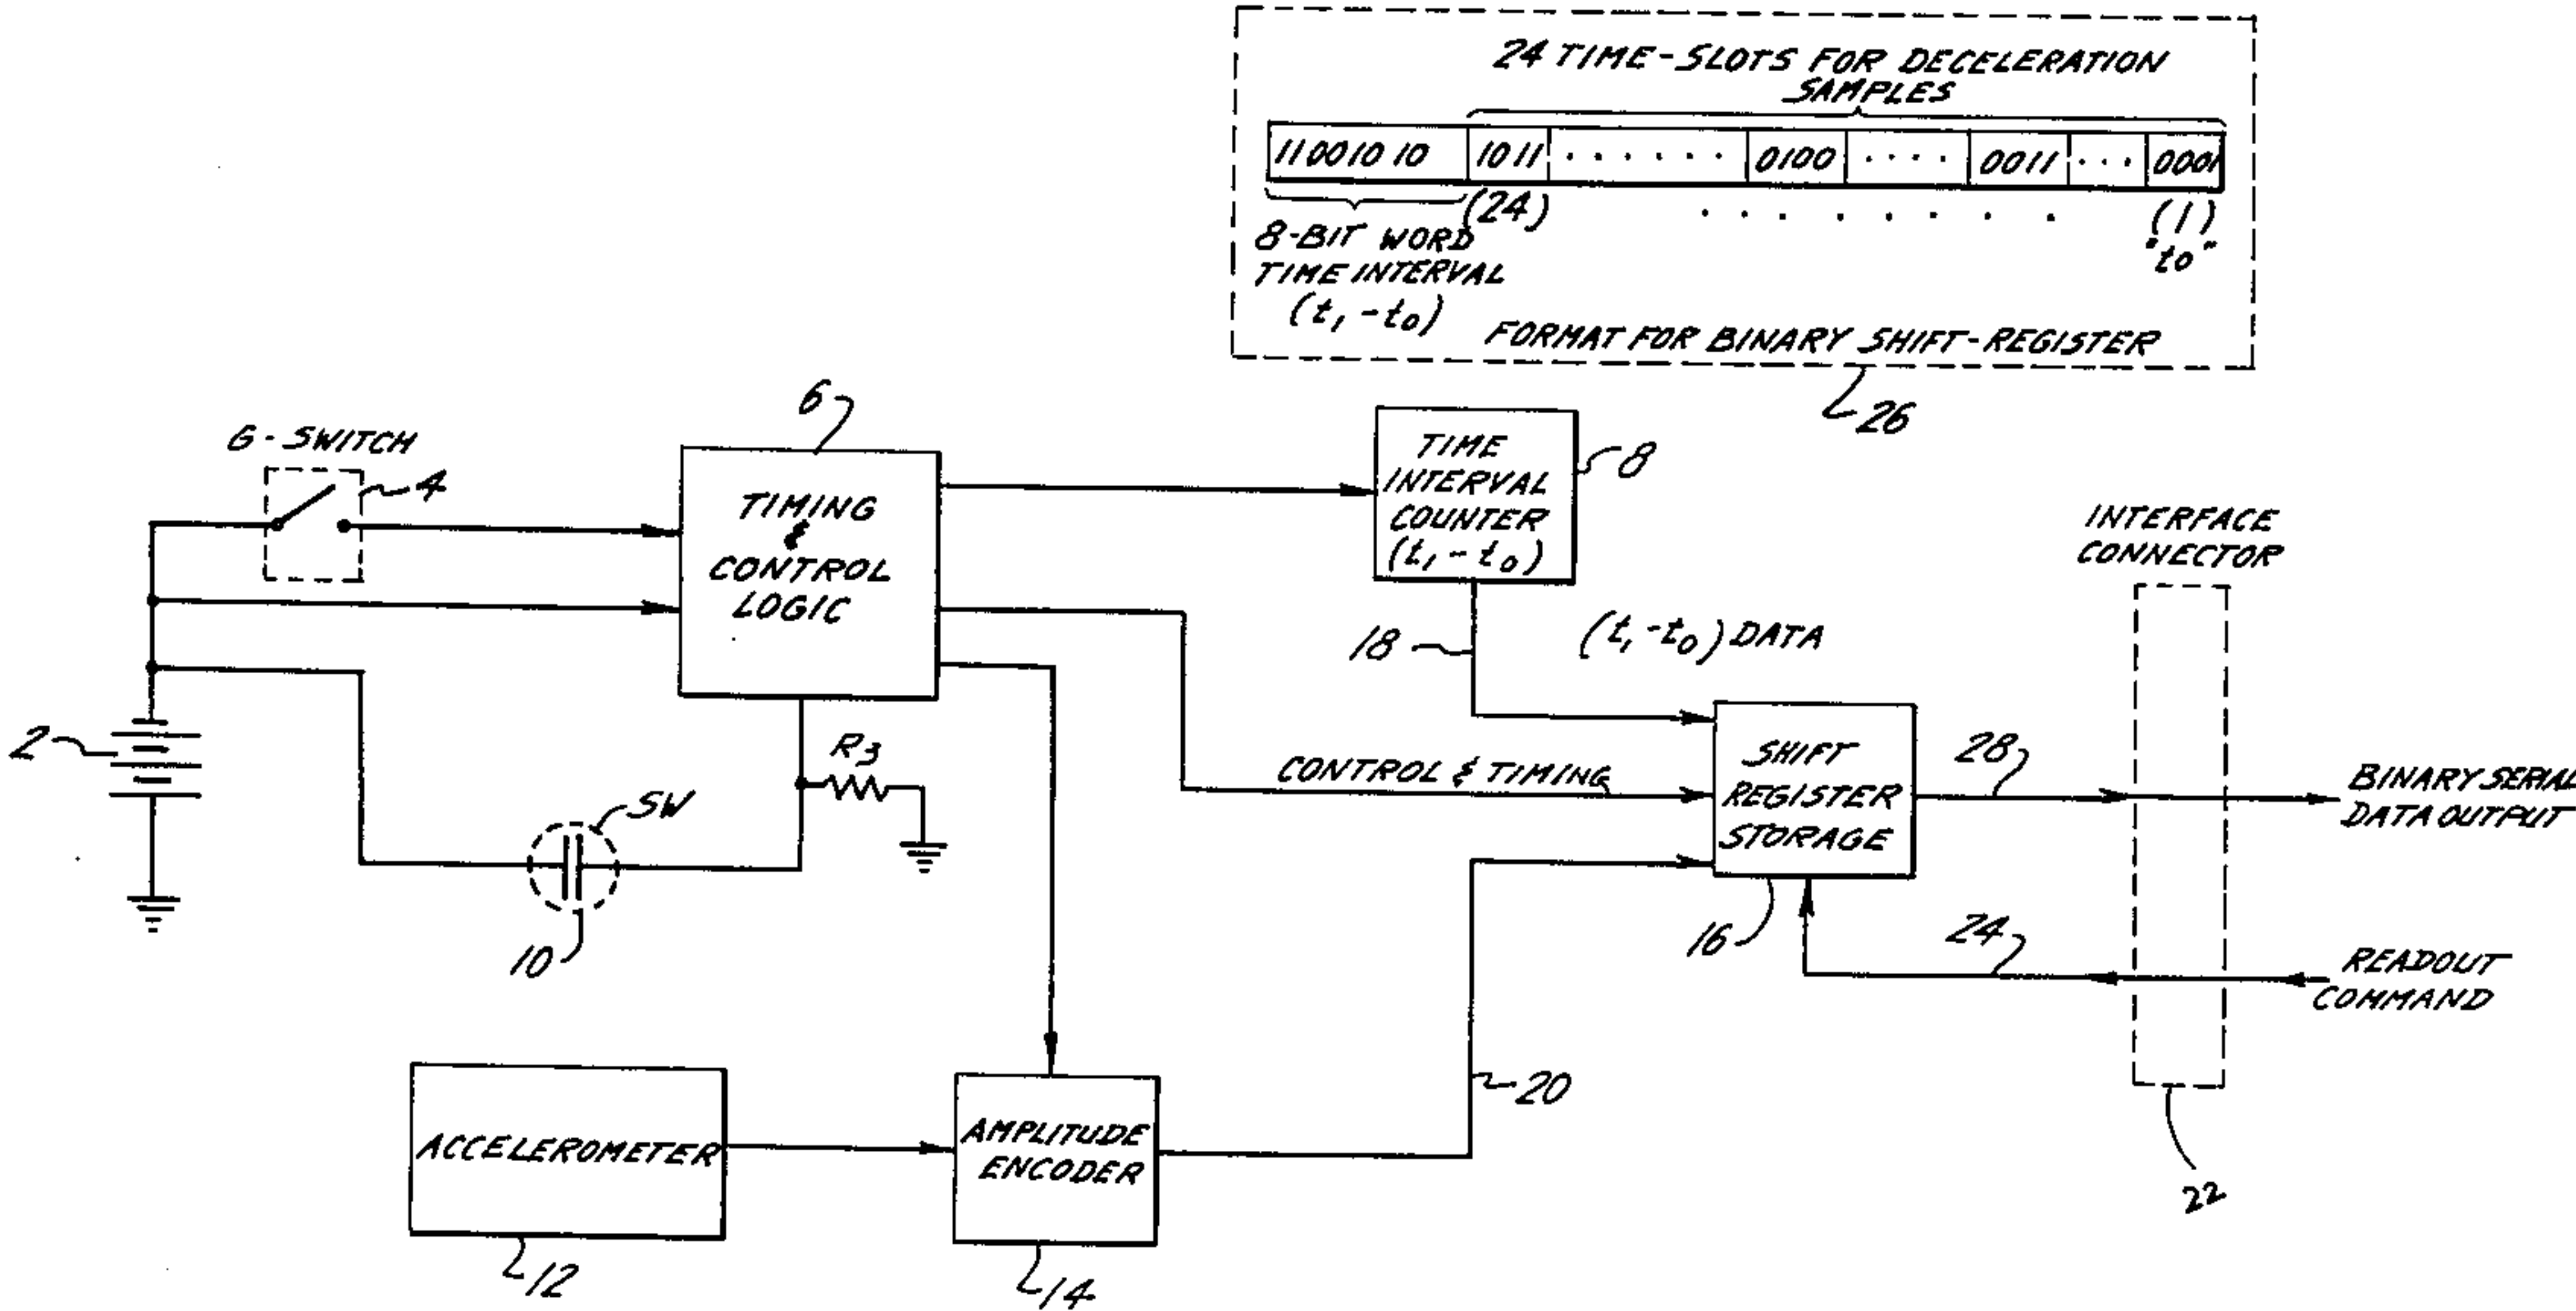 24 TIME-SLOTS FOR DECELERATION
SAMPLES
11001010 1011 . . . . . . 0100 . . . . 0011 . . . 0001
(24) . . . . . . . (1)
"to"
8-BIT WORD
TIME INTERVAL
(t₁-t₀)
FORMAT FOR BINARY SHIFT-REGISTER
26
G-SWITCH
4
6
TIMING
&
CONTROL
LOGIC
TIME
INTERVAL
COUNTER
(t₁-t₀)
8
INTERFACE
CONNECTOR
18
(t₁-t₀) DATA
2
R3
SW
10
CONTROL & TIMING
SHIFT
REGISTER
STORAGE
16
28
BINARY SERIAL
DATA OUTPUT
24
READOUT
COMMAND
20
22
ACCELEROMETER
12
AMPLITUDE
ENCODER
14